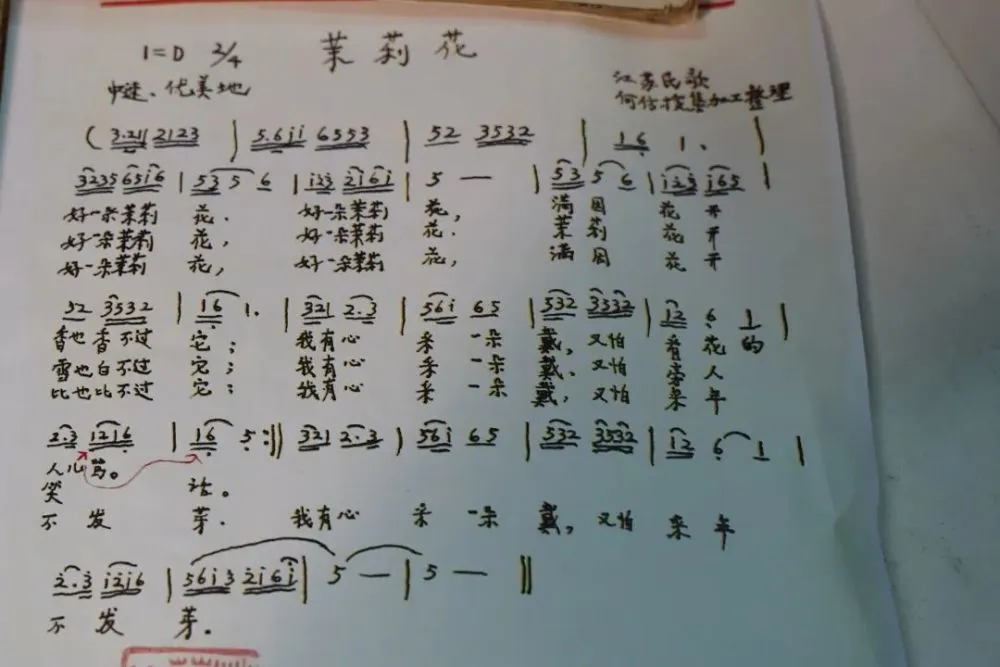 1=D 2/4 茉莉花
中速、优美地
江苏民歌
何仿搜集加工整理
( 3·21 2123 | 5·6i i 6553 | 52 3532 | 16 1· |
3235 656i6 | 53 5 6 | i23 2i6i | 5 — | 53 5 6 | i23 i65 |
好一朵茉莉 花. 好一朵茉莉 花, 满园 花开
好一朵茉莉 花, 好一朵茉莉 花. 茉莉 花开
好一朵茉莉 花, 好一朵茉莉 花, 满园 花开
52 3532 | 16 1· | 321 2·3 | 56i 65 | 532 3532 | 12 6 1 |
香也香不过 它; 我有心 采一朵 戴, 又怕 看花的
雪也白不过 它; 我有心 采一朵 戴. 又怕 旁人
比也比不过 它; 我有心 采一朵 戴, 又怕 来年
2·3 1216 | 16 5 :‖ 321 2·3 | 56i 65 | 532 3532 | 12 6 1 |
人儿骂。
笑 话。
不发 芽. 我有心 采一朵 戴, 又怕 来年
2·3 i2i6 | 56i3 2i6i | 5 — | 5 — ‖
不发 芽.